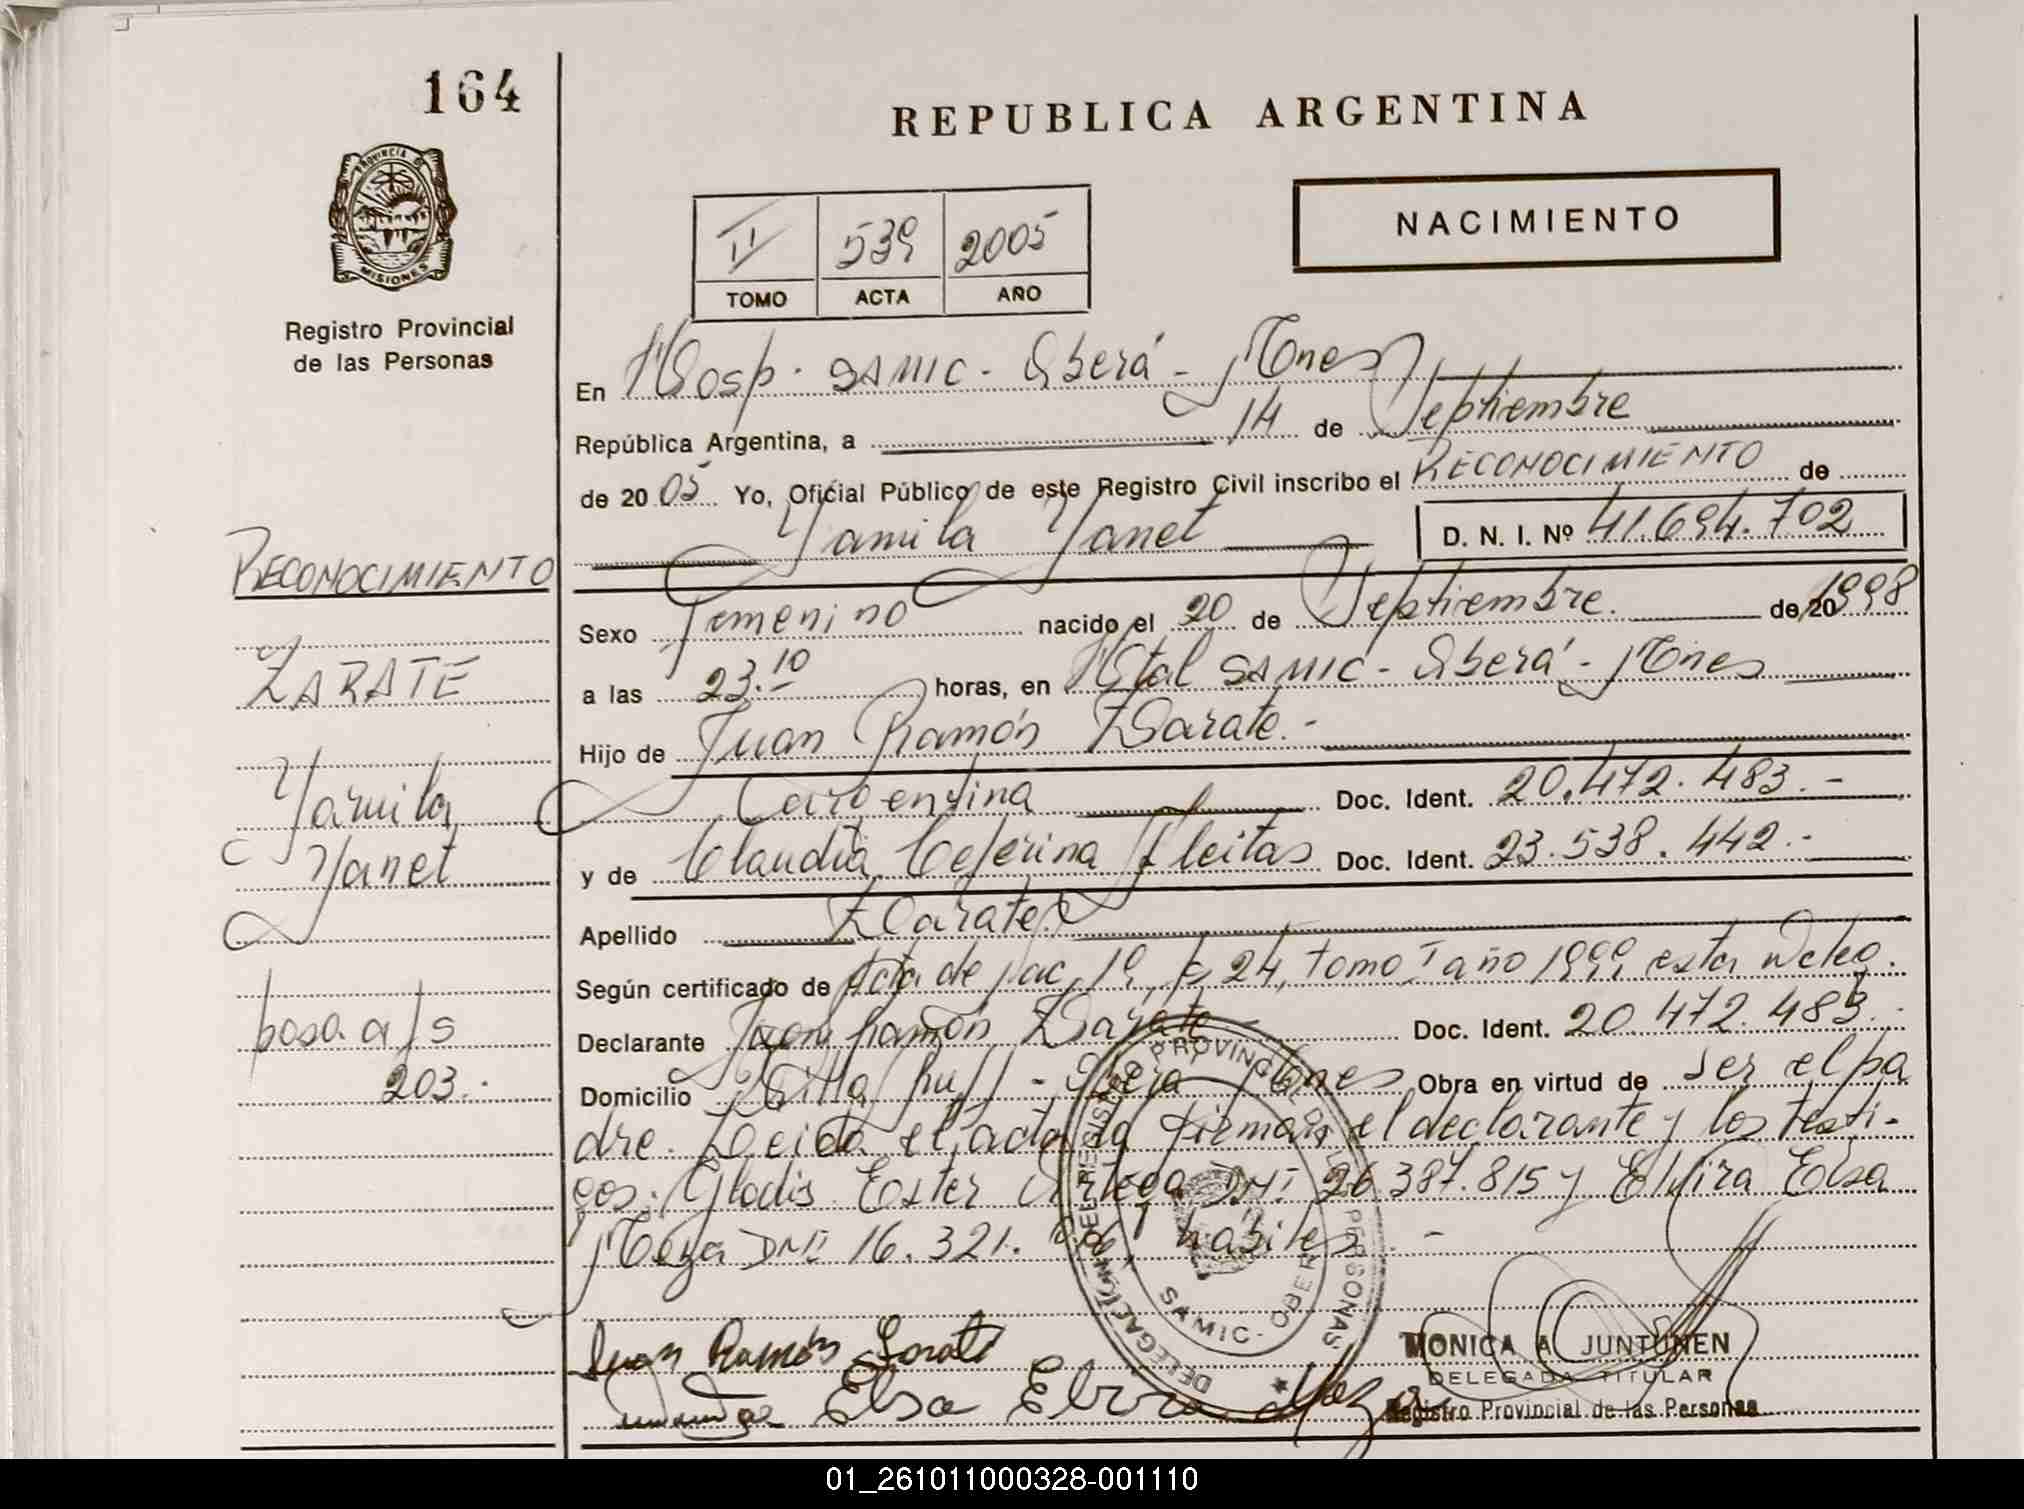 164
REPUBLICA ARGENTINA
PROVINCIA DE
MISIONES
Registro Provincial
de las Personas
II 539 2005
TOMO ACTA AÑO
NACIMIENTO
En Hosp. SAMIC - Oberá - Mnes
República Argentina, a 14 de Septiembre
de 2005 Yo, Oficial Público de este Registro Civil inscribo el RECONOCIMIENTO de
Yamila Yanet D. N. I. Nº 41.694.702
Sexo Femenino nacido el 20 de Septiembre. de 20 1998
a las 23.10 horas, en Hptal SAMIC - Oberá - Mnes
Hijo de Juan Ramón Zarate.-
argentina Doc. Ident. 20.472.483.-
y de Claudia Ceferina Fleitas Doc. Ident. 23.538.442.-
Apellido Zarate
Según certificado de Acta de Nac. 24, tomo I año 1999 esta Deleg.
Declarante Juan Ramón Zarate Doc. Ident. 20.472.483.-
Domicilio Villa Ruff - Oberá Mnes Obra en virtud de ser el pa
dre. Leida el acta la firman el declarante y los testi-
gos: Gladis Ester Ortega DNI 26.387.815 y Elvira Elsa
Meza DNI 16.321. hábiles.-
RECONOCIMIENTO
ZARATE
Yamila
Yanet
pasa a fs
203.-
DELEGACION DEL REGISTRO PROVINCIAL DE LAS PERSONAS
SAMIC - OBERA
Juan Ramón Zarate
Elsa Elvira Meza
MONICA A. JUNTUNEN
DELEGADA TITULAR
Registro Provincial de las Personas
01_261011000328-001110